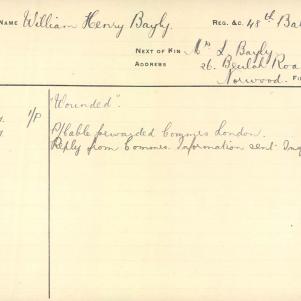 NAME William Henry Bayly. REG. &C. 48th Bat
NEXT OF KIN Mrs L. Bayly
ADDRESS 26. Beulah Roa
Norwood.
"Wounded".
1/P P/Cable forwarded Commrs London.
Reply from Commrs. Information sent